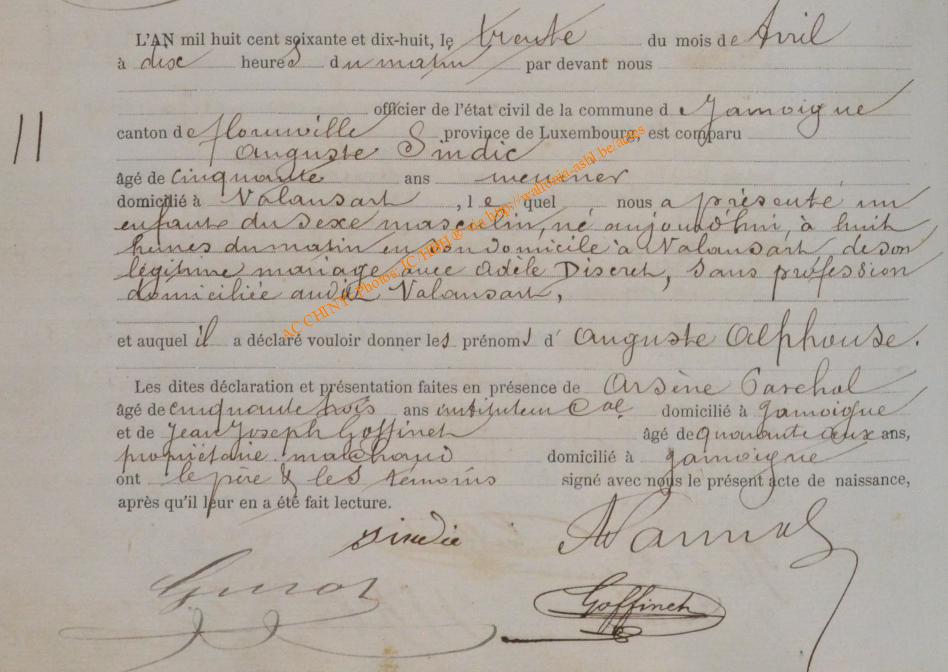 L'AN mil huit cent soixante et dix-huit, le trente du mois de Avril
à dix heures du matin par devant nous
officier de l'état civil de la commune de Jamoigne
11
canton de florenville province de Luxembourg, est comparu
Auguste Sindic
âgé de cinquante ans meunier
domicilié à Valansart, le quel nous a présenté un
enfant du sexe masculin, né aujourd'hui, à huit
heures du matin en son domicile à Valansart de son
légitime mariage avec Adèle Discret, sans profession
domiciliée audit Valansart,
et auquel il a déclaré vouloir donner les prénoms d'Auguste Alphonse.
Les dites déclaration et présentation faites en présence de Arsène
âgé de cinquante trois ans instituteur Cal domicilié à Jamoigne
et de Jean Joseph Goffinet âgé de quarante deux ans,
propriétaire marchand domicilié à Jamoigne
ont le père & les témoins signé avec nous le présent acte de naissance,
après qu'il leur en a été fait lecture.
Sindic
Goffinet
AC CHINY Photos JC